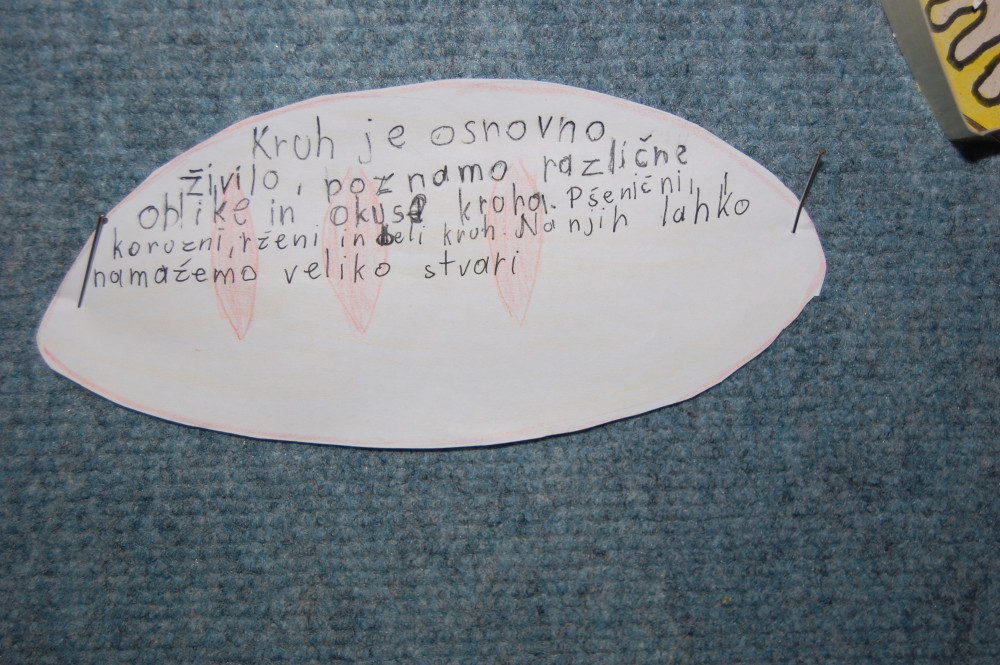 Kruh je osnovno
živilo, poznamo različne
oblike in okuse kruha. Pšenični,
koruzni, rženi in beli kruh. Na njih lahko
namažemo veliko stvari